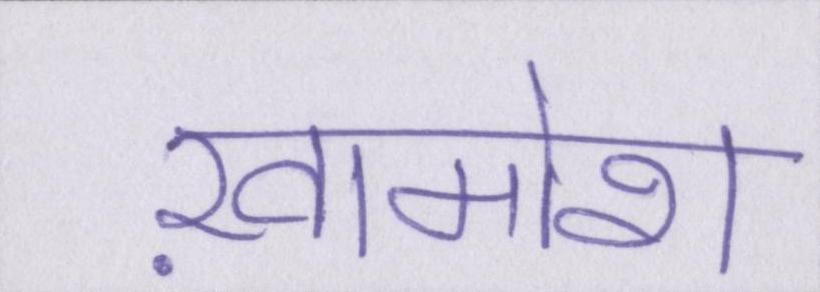 ख़ामोश